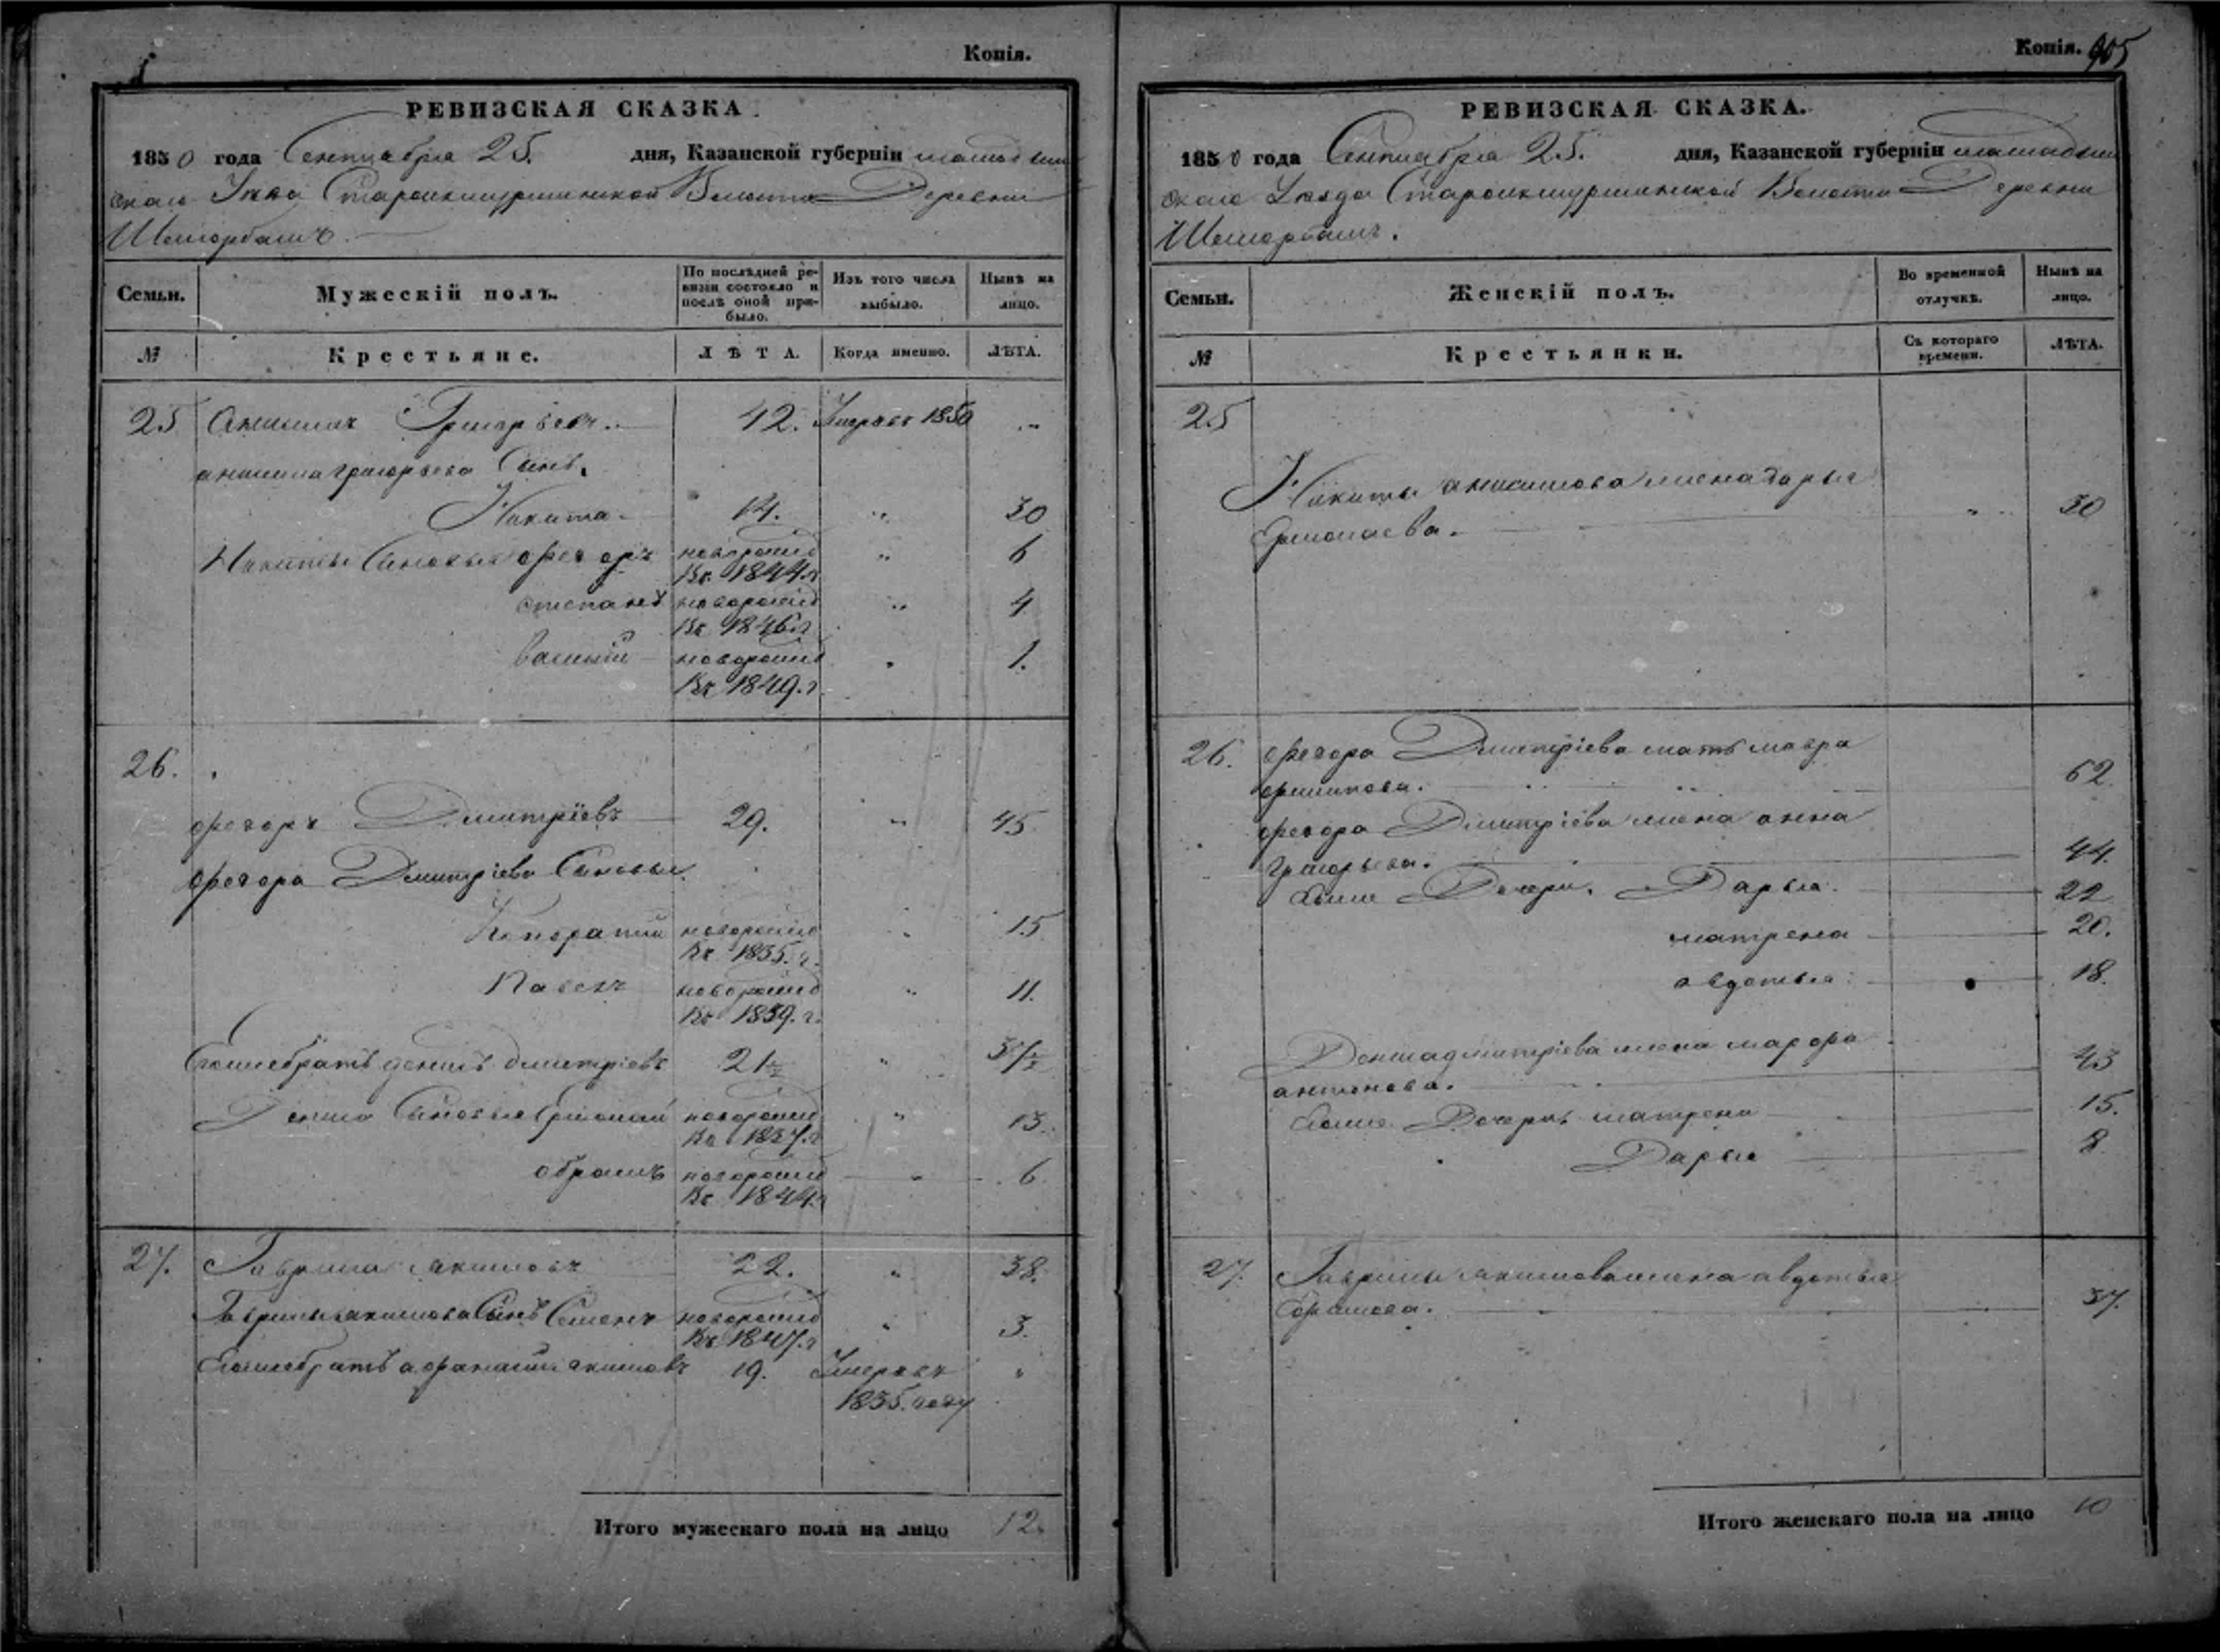 Копія.
РЕВИЗСКАЯ СКАЗКА.
1850 года Сентября 25. дня, Казанской губерніи мамадыш
скаго Уѣзда Староикшурминской Волости Деревни
Шеморбашъ.
Семьи.
Мужескій полъ.
По послѣдней ре-
визіи состояло и
послѣ оной при-
было.
Изъ того числа
выбыло.
Нынѣ на
лицо.
№
Крестьяне.
ЛѢТА.
Когда именно.
ЛѢТА.
25 Анисимъ Григорьевъ. 42. Умеръ въ 1850 „
анисима григорьева Сынъ.
Никита 14. „ 30
Никиты Сыновья Фегоръ новорожд „ 6
въ 1844 г
степанъ новорожд „ 4
въ 1846 г
василій новорожд „ 1.
въ 1849. г
26.
Фегоръ Дмитріевъ 29. „ 45
Фегора Дмитріева Сыновья
новорожд „ 15
въ 1835. г.
Павелъ новорожд „ 11.
въ 1839. г.
Егоже братъ денисъ дмитріевъ 21½ „ 37½
Дениса Сыновья Ермолай новорожд „ 13.
въ 1837. г
обрамъ новорожд „ 6
въ 1844. г
27. Гаврила акимовъ 22. „ 38.
Гаврилы акимова Сынъ Семенъ новорожд „ 3.
въ 1847. г
Егоже братъ афанасій акимовъ 19. Умеръ въ „
1835. году
Итого мужескаго пола на лицо 12.
Копія. 905
РЕВИЗСКАЯ СКАЗКА.
1850 года Сентября 25. дня, Казанской губерніи мамадыш
скаго Уѣзда Староикшурминской Волости Деревни
Шеморбашъ.
Семьи.
Женскій полъ.
Во временной
отлучкѣ.
Нынѣ на
лицо.
№
Крестьянки.
Съ котораго
времени.
ЛѢТА.
25
Никиты анисимова жена дарья
Ермолаева. „ 30
26. Фегора Дмитріева мать мавра
62
Фегора Дмитріева жена анна
Григорьева. 44.
Ихже Дочери. Дарья. 22
матрена 20.
авдотья 18.
Дениса дмитріева жена марфа
антонова. 43
Ихже Дочери матрена 15.
Дарья 8.
27. Гаврилы акимова жена авдотья
37.
Итого женскаго пола на лицо 10